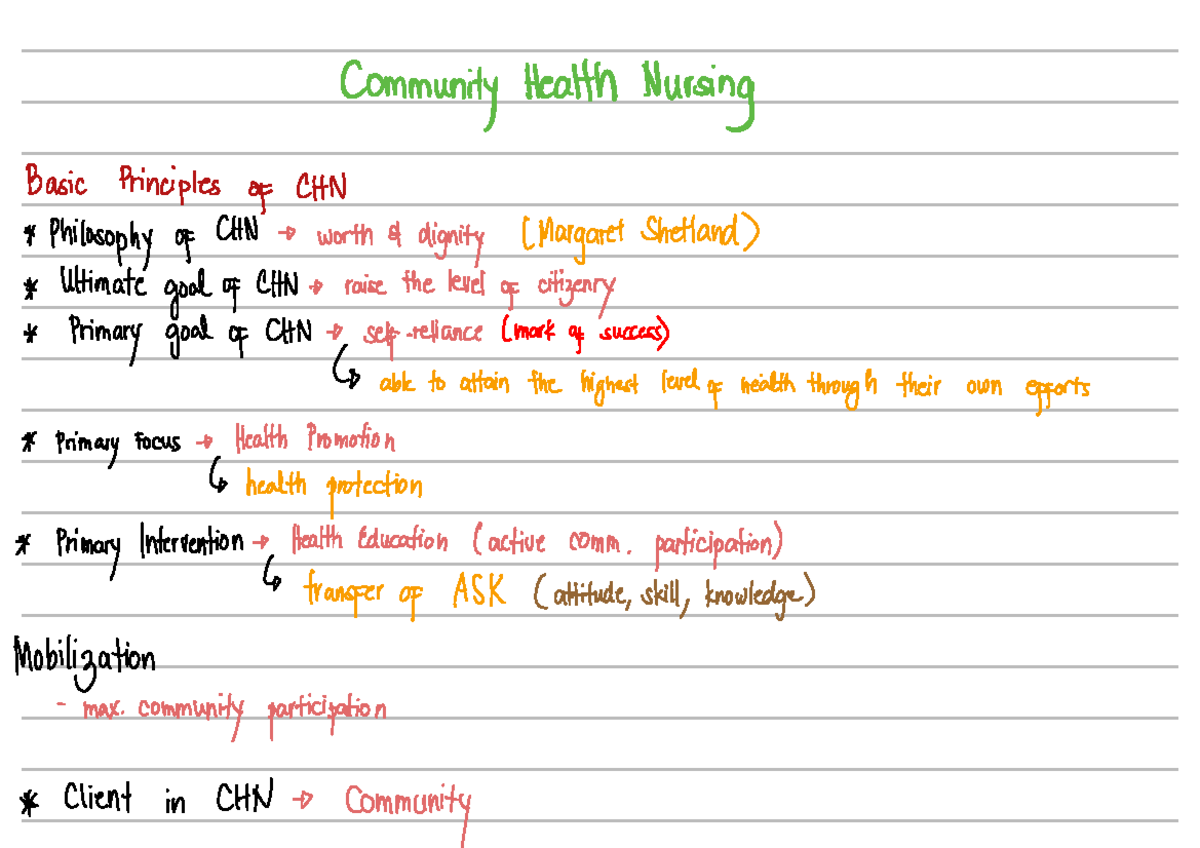 Community Health Nursing
Basic Principles of CHN
* Philosophy of CHN → worth & dignity (Margaret Shetland)
* Ultimate goal of CHN → raise the level of citizenry
* Primary goal of CHN → self-reliance (mark of success)
↳ able to attain the highest level of health through their own efforts
* Primary Focus → Health Promotion
↳ health protection
* Primary Intervention → Health Education (active comm. participation)
↳ transfer of ASK (attitude, skill, knowledge)
Mobilization
- max. community participation
* Client in CHN → Community